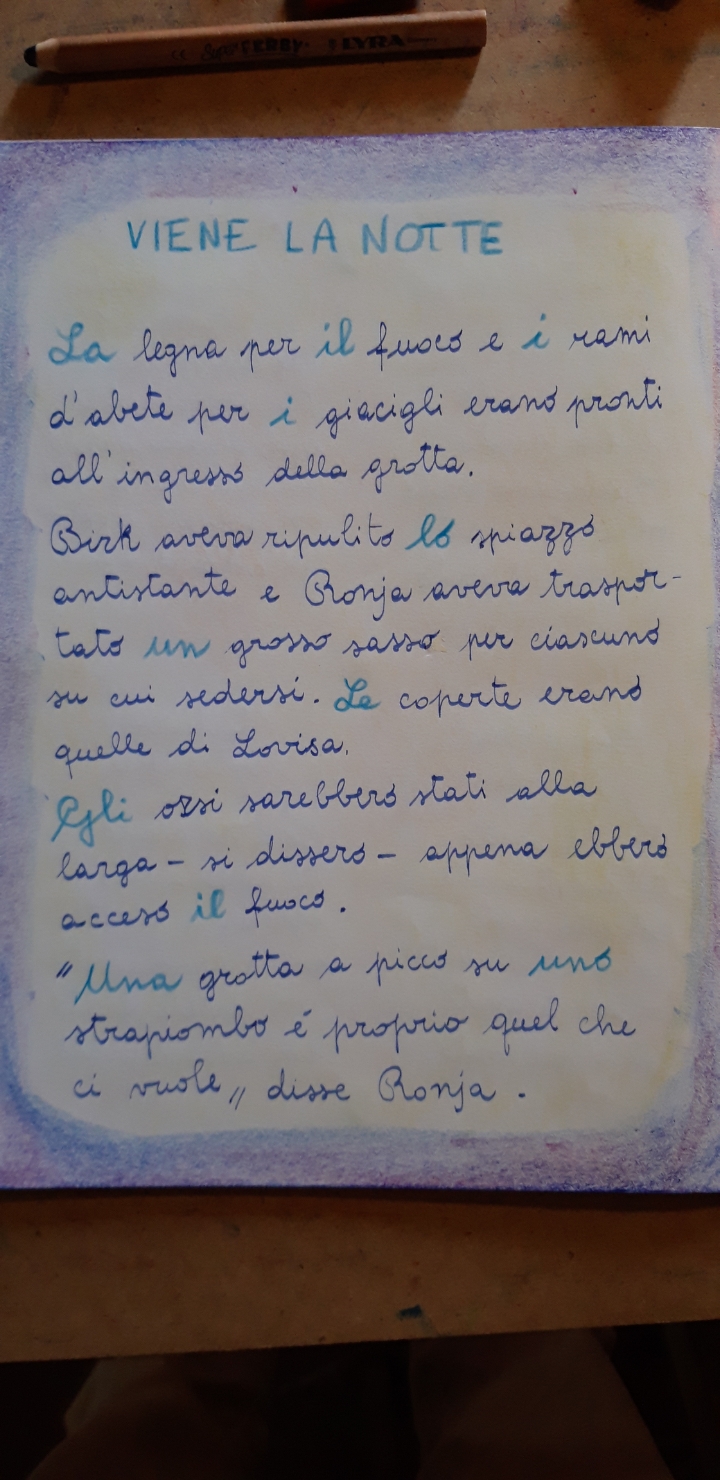 Super FERBY LYRA
VIENE LA NOTTE
La legna per il fuoco e i rami
d'abete per i giacigli erano pronti
all'ingresso della grotta.
Birk aveva ripulito lo spiazzo
antistante e Ronja aveva traspor-
tato un grosso sasso per ciascuno
su cui sedersi. Le coperte erano
quelle di Lovisa.
Gli orsi sarebbero stati alla
larga - si dissero - appena ebbero
acceso il fuoco.
"Una grotta a picco su uno
strapiombo é proprio quel che
ci vuole„ disse Ronja.